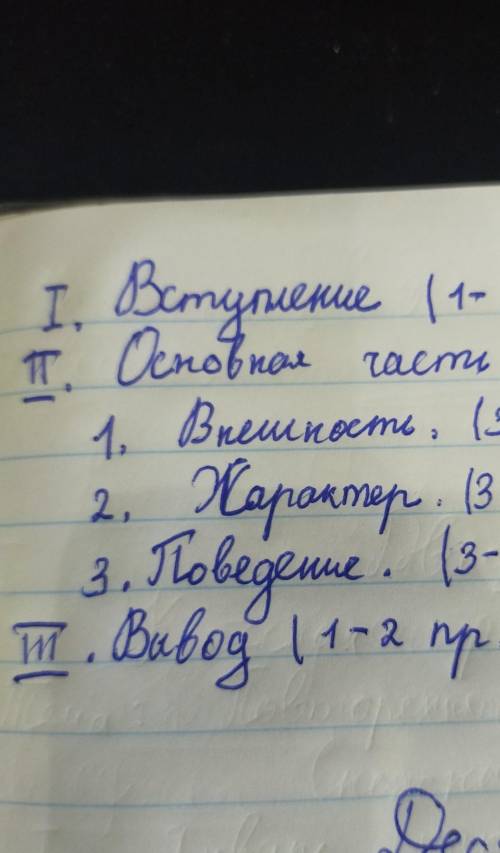 I. Вступление (1-
II. Основная часть
1. Внешность. (3
2. Характер. (3
3. Поведение. (3-
III. Вывод (1-2 пр